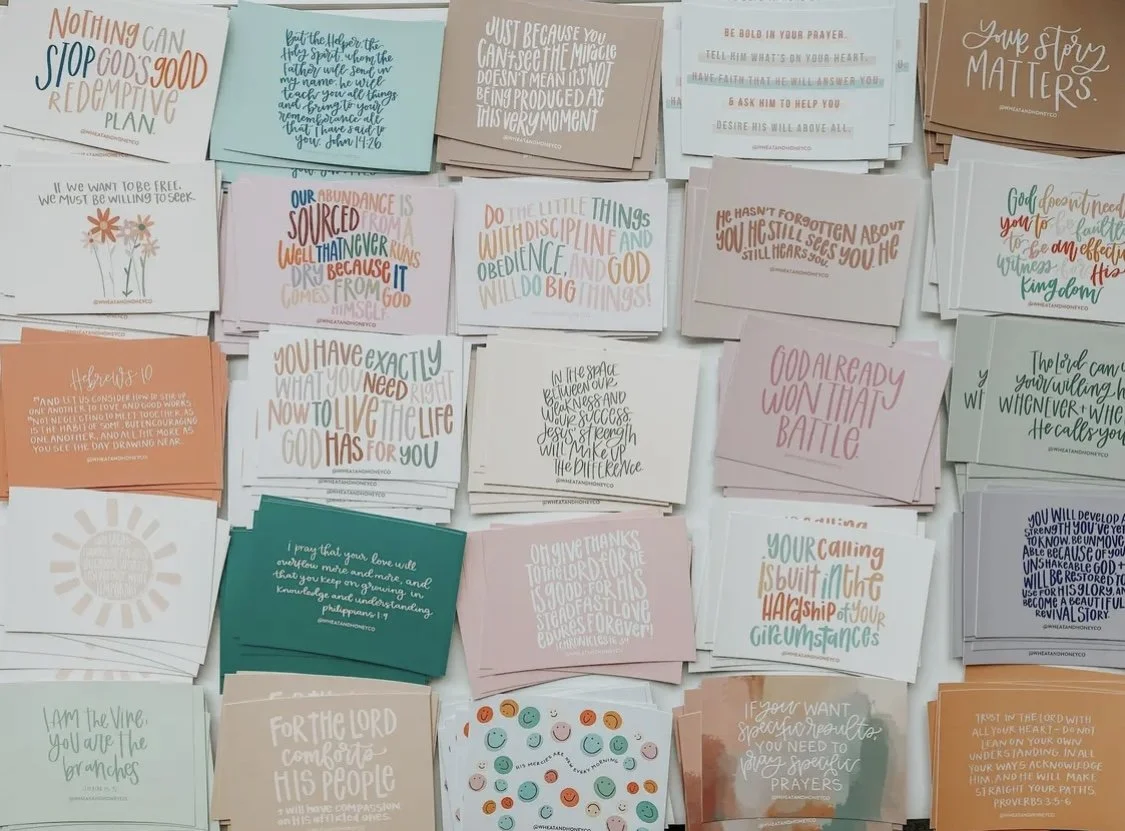 NOTHING CAN
STOP GOD'S GOOD
REDEMPTIVE
PLAN.
@WHEATANDHONEYCO
But the Helper, the
Holy Spirit, whom the
Father will send in
my name, he will
teach you all things
and bring to your
remembrance all
that I have said to
you. John 14:26
JUST BECAUSE YOU
CAN'T SEE THE MIRACLE
DOESN'T MEAN IT'S NOT
BEING PRODUCED AT
THIS VERY MOMENT
@WHEATANDHONEYCO
BE BOLD IN YOUR PRAYER.
TELL HIM WHAT'S ON YOUR HEART.
HAVE FAITH THAT HE WILL ANSWER YOU
& ASK HIM TO HELP YOU
DESIRE HIS WILL ABOVE ALL.
@WHEATANDHONEYCO
Your story
MATTERS.
@WHEATANDHONEYCO
IF WE WANT TO BE FREE,
WE MUST BE WILLING TO SEEK
@WHEATANDHONEYCO
OUR ABUNDANCE IS
SOURCED FROM A
WELL THAT NEVER RUNS
DRY BECAUSE IT
COMES FROM GOD
HIMSELF.
@WHEATANDHONEYCO
DO THE LITTLE THINGS
WITH DISCIPLINE AND
OBEDIENCE, AND GOD
WILL DO BIG THINGS!
HE HASN'T FORGOTTEN ABOUT
YOU. HE STILL SEES YOU. HE
STILL HEARS YOU.
@WHEATANDHONEYCO
God doesn't need
you to be faultle
to be an effectiv
witness for His
Kingdom
@WHEATANDHONEYCO
Hebrews 10
"AND LET US CONSIDER HOW TO STIR UP
ONE ANOTHER TO LOVE AND GOOD WORKS
NOT NEGLECTING TO MEET TOGETHER, AS
IS THE HABIT OF SOME, BUT ENCOURAGING
ONE ANOTHER, AND ALL THE MORE AS
YOU SEE THE DAY DRAWING NEAR.
@WHEATANDHONEYCO
YOU HAVE EXACTLY
WHAT YOU NEED RIGHT
NOW TO LIVE THE LIFE
GOD HAS FOR YOU
@WHEATANDHONEYCO
IN THE SPACE
BETWEEN OUR
WEAKNESS AND
OUR SUCCESS,
Jesus' strength
WILL MAKE UP
THE DIFFERENCE.
@WHEATANDHONEYCO
GOD ALREADY
WON THAT
BATTLE.
@WHEATANDHONEYCO
The Lord can u
your willing h
WHENEVER + WHE
He calls you
@WHEATANDHONEYCO
i pray that your love will
overflow more and more, and
that you keep on growing in
knowledge and understanding.
philippians 1:9
@WHEATANDHONEYCO
OH GIVE THANKS
TO THE LORD, FOR HE
IS GOOD, FOR HIS
STEADFAST LOVE
ENDURES FOREVER!
1 CHRONICLES 16:34
@WHEATANDHONEYCO
YOUR calling
is built in the
HARDSHIP of your
circumstances
@WHEATANDHONEYCO
YOU WILL DEVELOP A
STRENGTH YOU'VE YET
TO KNOW. BE UNMOVE
ABLE BECAUSE OF YOU
UNSHAKEABLE GOD +
WILL BE RESTORED TO
USE FOR HIS GLORY, AN
BECOME A BEAUTIFUL
REVIVAL STORY.
@WHEATANDHONEYCO
I AM the Vine,
you are the
branches
JOHN 15:5
FOR THE LORD
comforts
HIS PEOPLE
+ will have compassion
on his afflicted ones.
HIS MERCIES ARE NEW EVERY MORNING
@WHEATANDHONEYCO
IF YOU WANT
specific results,
YOU NEED TO
pray specific
PRAYERS
@WHEATANDHONEYCO
TRUST IN THE LORD WITH
ALL YOUR HEART - DO NOT
LEAN ON YOUR OWN
UNDERSTANDING. IN ALL
YOUR WAYS ACKNOWLEDGE
HIM, AND HE WILL MAKE
STRAIGHT YOUR PATHS.
PROVERBS 3:5-6
@WHEATANDHONEYCO